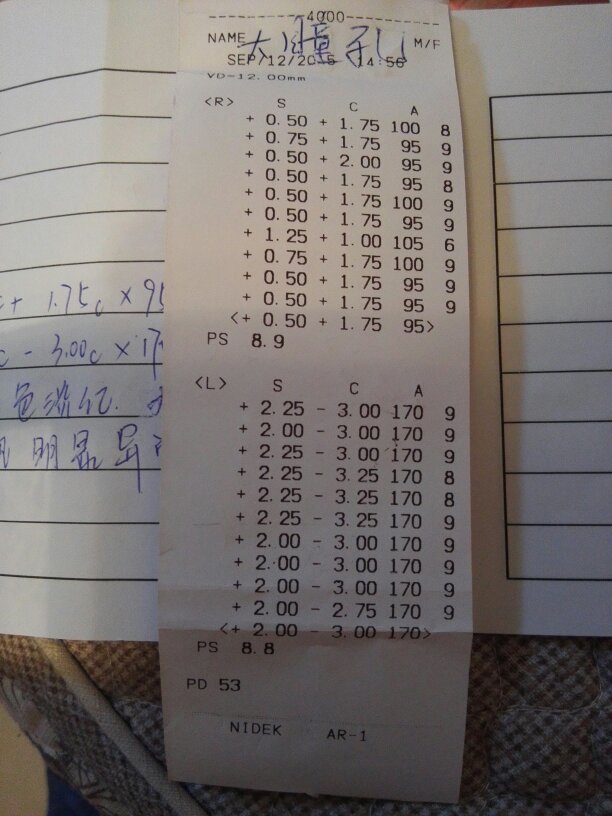 4000
NAME 大瞳孔 M/F
SEP/12/2015 14:56
VD=12.00mm
<R> S C A
+ 0.50 + 1.75 100 8
+ 0.75 + 1.75 95 9
+ 0.50 + 2.00 95 9
+ 0.50 + 1.75 95 8
+ 0.50 + 1.75 100 9
+ 0.50 + 1.75 95 9
+ 1.25 + 1.00 105 6
+ 0.75 + 1.75 100 9
+ 0.50 + 1.75 95 9
+ 0.50 + 1.75 95 9
<+ 0.50 + 1.75 95>
PS 8.9
<L> S C A
+ 2.25 - 3.00 170 9
+ 2.00 - 3.00 170 9
+ 2.25 - 3.00 170 9
+ 2.25 - 3.25 170 8
+ 2.25 - 3.25 170 8
+ 2.25 - 3.25 170 9
+ 2.00 - 3.00 170 9
+ 2.00 - 3.00 170 9
+ 2.00 - 3.00 170 9
+ 2.00 - 2.75 170 9
<+ 2.00 - 3.00 170>
PS 8.8
PD 53
NIDEK AR-1
+ 1.75c × 95
c - 3.00c × 17
色淡红
明显异